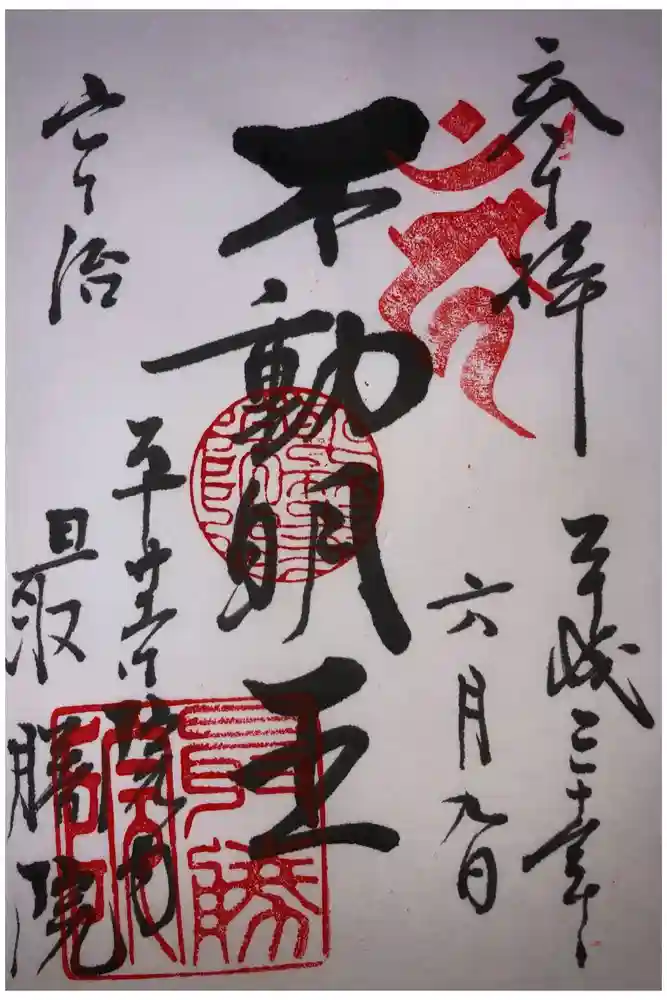 奉拝
平成三十年
六月九日
不動明王
宇治
平等院内
最勝院